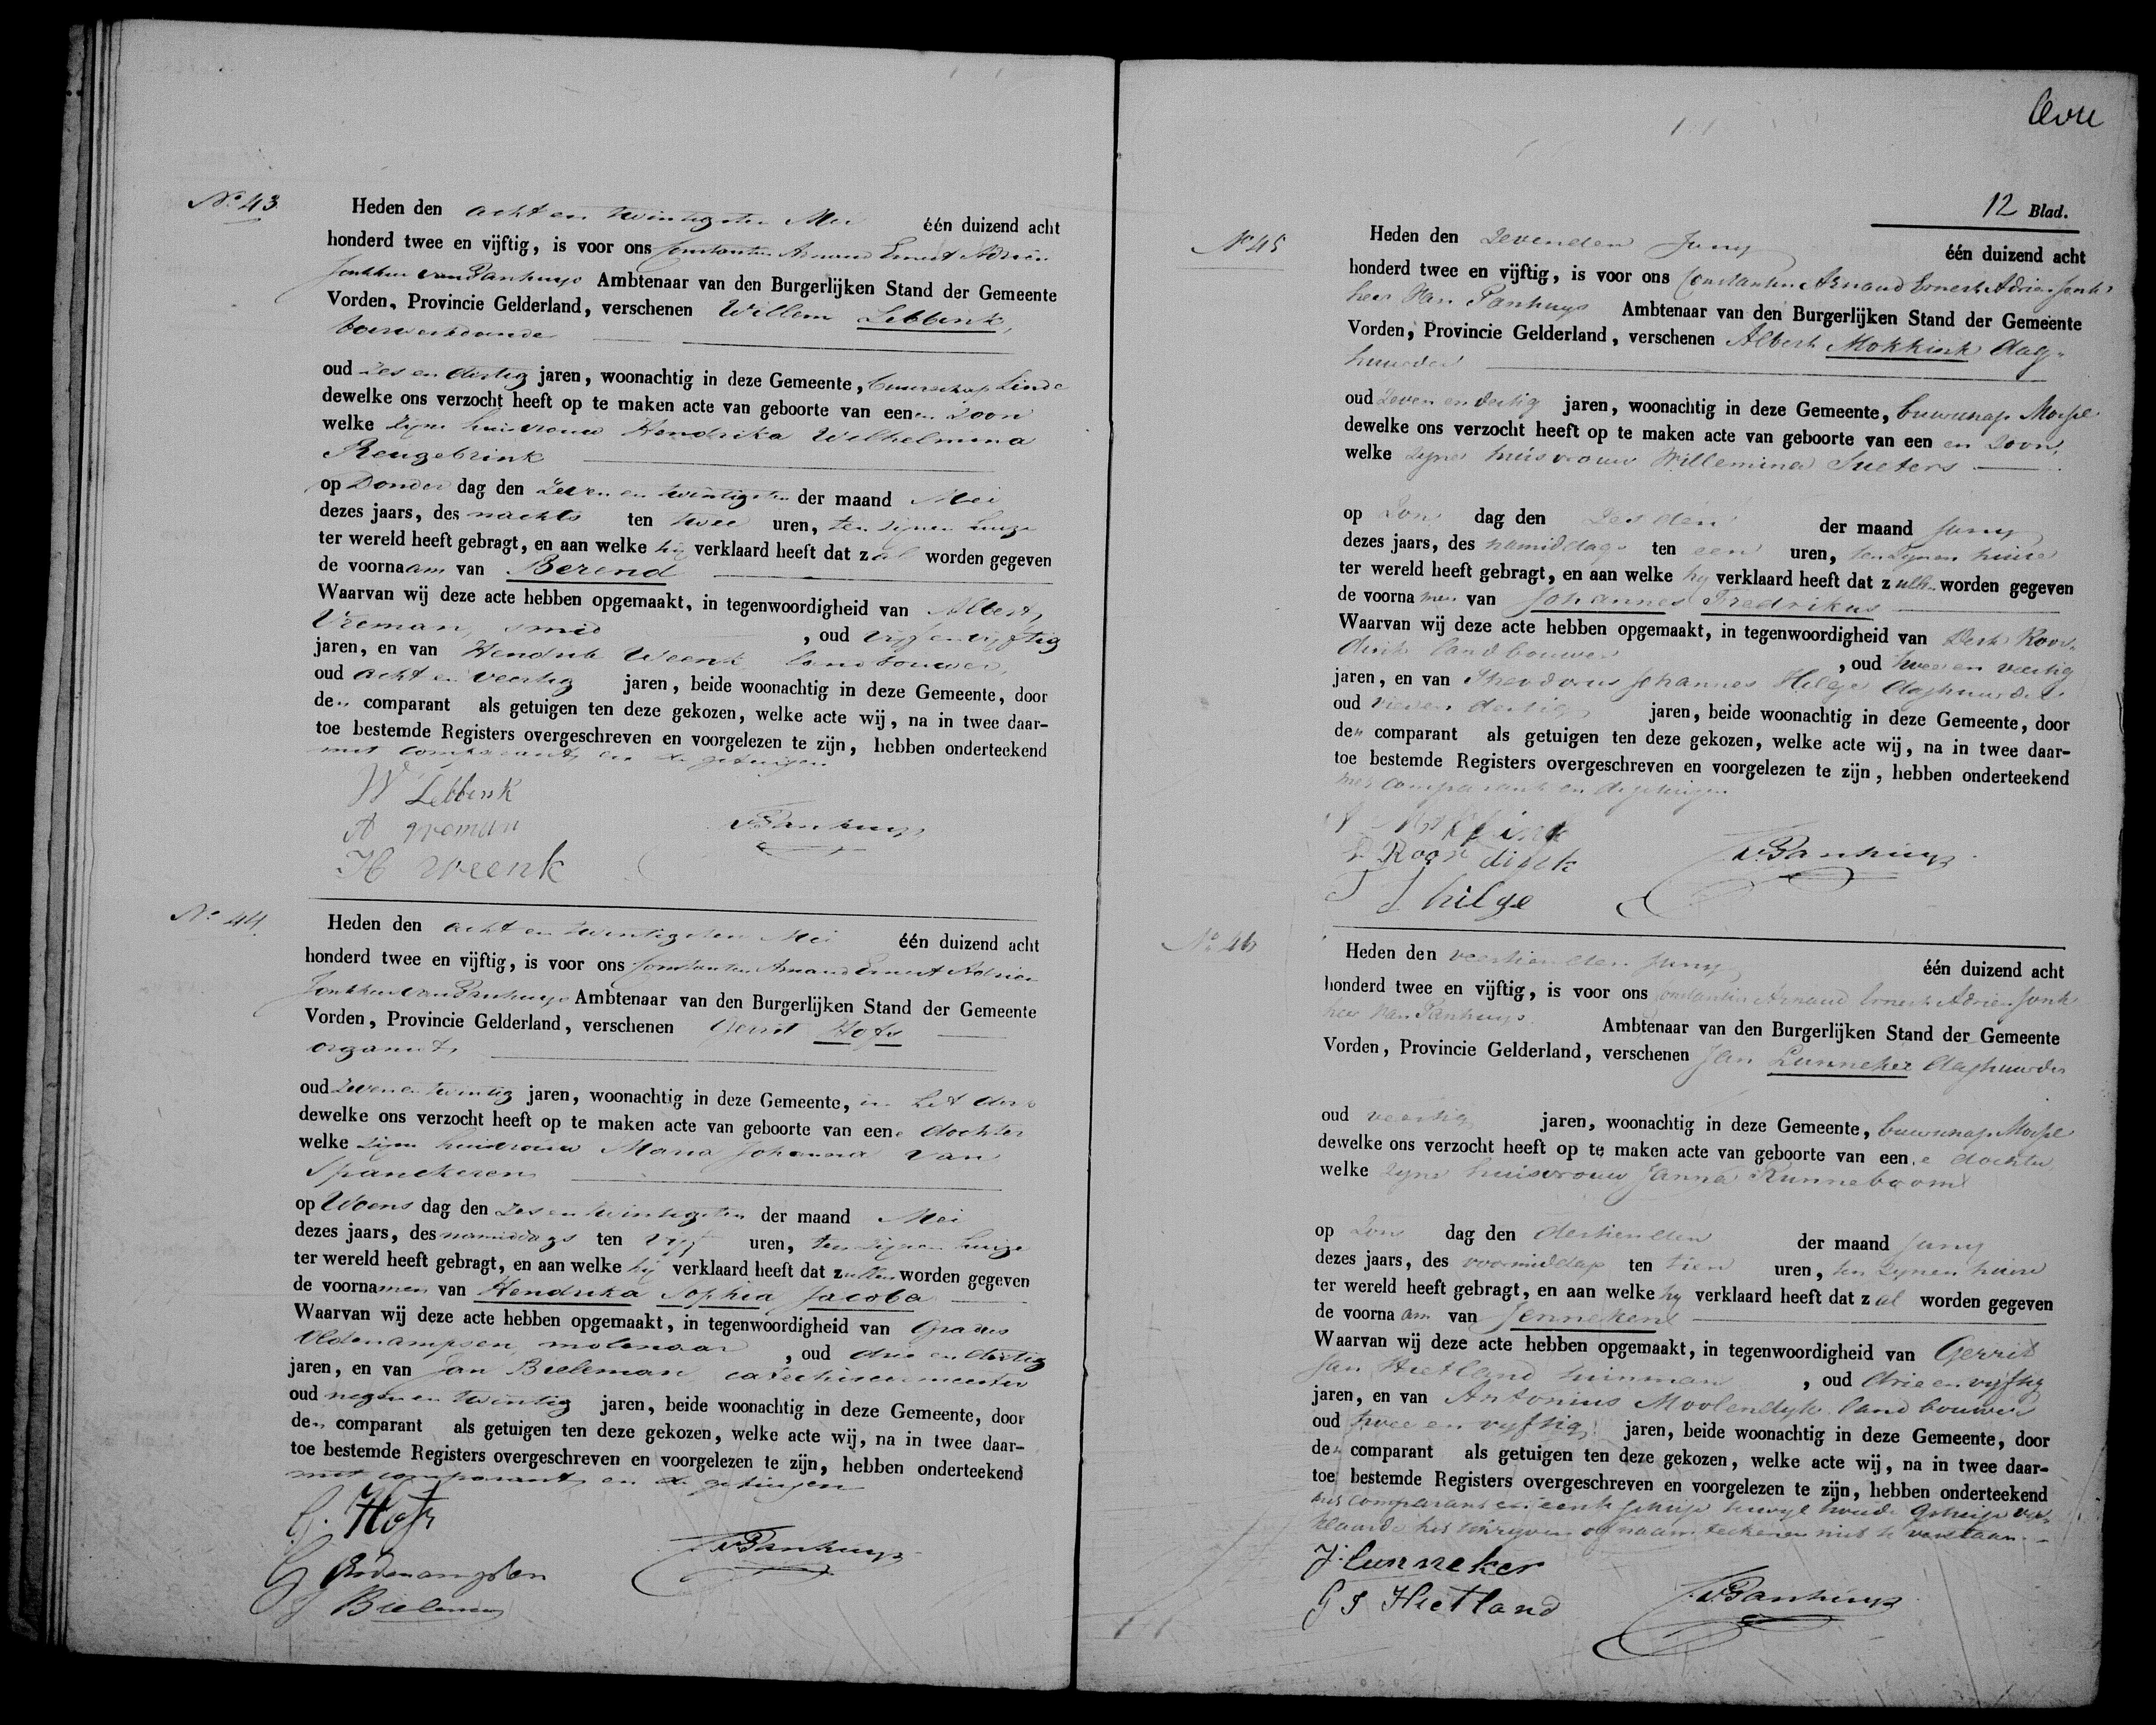 No. 43
Heden den acht en twintigsten Mei één duizend acht
honderd twee en vijftig, is voor ons Constantin Arnaud Ernest Adrien
Jonkheer van Panhuys Ambtenaar van den Burgerlijken Stand der Gemeente
Vorden, Provincie Gelderland, verschenen Willem Lebbink,
bouwverkdoende
oud zes en dertig jaren, woonachtig in deze Gemeente, buurschap Linde
dewelke ons verzocht heeft op te maken acte van geboorte van eenen zoon
welke zijne huisvrouw Hendrika Wilhelmina
Reugebrink
op Donder dag den zeven en twintigsten der maand Mei
dezes jaars, des nachts ten twee uren, ten zijnen huize
ter wereld heeft gebragt, en aan welke hij verklaard heeft dat zal worden gegeven
de voornaam van Berend
Waarvan wij deze acte hebben opgemaakt, in tegenwoordigheid van Albert
Vreman, smid, oud vijf en vijftig
jaren, en van Hendrik Weenk landbouwer,
oud acht en veertig jaren, beide woonachtig in deze Gemeente, door
den comparant als getuigen ten deze gekozen, welke acte wij, na in twee daar-
toe bestemde Registers overgeschreven en voorgelezen te zijn, hebben onderteekend
met comparant en de getuigen
W Lebbink
A vreman
H weenk
v Panhuys
No. 44.
Heden den acht en twintigsten Mei één duizend acht
honderd twee en vijftig, is voor ons Constantin Arnaud Ernest Adrien
Jonkheer van Panhuys Ambtenaar van den Burgerlijken Stand der Gemeente
Vorden, Provincie Gelderland, verschenen Gerrit Hofs
organist
oud zeven en twintig jaren, woonachtig in deze Gemeente, in het dorp
dewelke ons verzocht heeft op te maken acte van geboorte van eene dochter
welke zijne huisvrouw Maria Johanna van
Spanckeren
op Woens dag den zes en twintigsten der maand Mei
dezes jaars, des namiddags ten vijf uren, ten zijnen huize
ter wereld heeft gebragt, en aan welke hij verklaard heeft dat zullen worden gegeven
de voornamen van Hendrika Sophia Jacoba
Waarvan wij deze acte hebben opgemaakt, in tegenwoordigheid van Gradus
Oldenampsen, molenaar, oud drie en dertig
jaren, en van Jan Bieleman catechiseermeester
oud negen en twintig jaren, beide woonachtig in deze Gemeente, door
den comparant als getuigen ten deze gekozen, welke acte wij, na in twee daar-
toe bestemde Registers overgeschreven en voorgelezen te zijn, hebben onderteekend
met comparant en de getuigen
G. Hofs
G Oldenampsen
J Bieleman
v Panhuys
12 Blad.
No 45
Heden den Zevenden Juny één duizend acht
honderd twee en vijftig, is voor ons Constantin Arnaud Ernest Adrien Jonk
heer Van Panhuys Ambtenaar van den Burgerlijken Stand der Gemeente
Vorden, Provincie Gelderland, verschenen Albert Mokkink dag-
huurder
oud Zeven en dertig jaren, woonachtig in deze Gemeente, buurschap Mossel
dewelke ons verzocht heeft op te maken acte van geboorte van een en Zoon,
welke Zyne huisvrouw Willemina Sueters
op Zon dag den Zesden der maand Juny
dezes jaars, des namiddags ten een uren, ten Zynen huise
ter wereld heeft gebragt, en aan welke hy verklaard heeft dat zullen worden gegeven
de voornamen van Johannes Fredrikus
Waarvan wij deze acte hebben opgemaakt, in tegenwoordigheid van Derk Roos-
dink landbouwer, oud twee en veertig
jaren, en van Theodorus Johannes Hilge daghuurder
oud vier en dertig jaren, beide woonachtig in deze Gemeente, door
den comparant als getuigen ten deze gekozen, welke acte wij, na in twee daar-
toe bestemde Registers overgeschreven en voorgelezen te zijn, hebben onderteekend
met comparant en de getuigen
A Mokkink
D Roosdinck
T J hilge
v. Panhuys
No 46
Heden den veertienden Juny één duizend acht
honderd twee en vijftig, is voor ons Constantin Arnaud Ernest Adrien Jonk
heer Van Panhuys Ambtenaar van den Burgerlijken Stand der Gemeente
Vorden, Provincie Gelderland, verschenen Jan Lunneker daghuurder
oud veertig jaren, woonachtig in deze Gemeente, buurschap Mossel
dewelke ons verzocht heeft op te maken acte van geboorte van eene dochter
welke Zyne huisvrouw Janna Runneboom
op Zon dag den dertienden der maand Juny
dezes jaars, des voormiddags ten tien uren, ten Zynen huise
ter wereld heeft gebragt, en aan welke hy verklaard heeft dat zal worden gegeven
de voornaam van Jenneken
Waarvan wij deze acte hebben opgemaakt, in tegenwoordigheid van Gerrit
Jan Hietland huurman, oud drie en vyftig
jaren, en van Antonius Moolendyk landbouwer
oud twee en vyftig jaren, beide woonachtig in deze Gemeente, door
den comparant als getuigen ten deze gekozen, welke acte wij, na in twee daar-
toe bestemde Registers overgeschreven en voorgelezen te zijn, hebben onderteekend
met comparant en eerste getuige terwyl tweede getuige ver
klaarde het schryven of naam teekenen niet te verstaan
J. Lunneker
G J Hietland
v. Panhuys